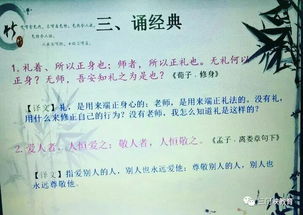 三、诵经典
1. 礼者、所以正身也；师者，所以正礼也。无礼何以
正身？无师，吾安知礼之为是也？《荀子·修身》
【译文】礼，是用来端正身心的；老师，是用来端正礼法的。没有礼，
用什么来修正自己的行为？没有老师，我怎么知道礼是这样的？
2. 爱人者，人恒爱之；敬人者，人恒敬之。《孟子·离娄章句下》
【译文】指爱别人的人，别人也永远爱他；尊敬别人的人，别人也
永远尊敬他。